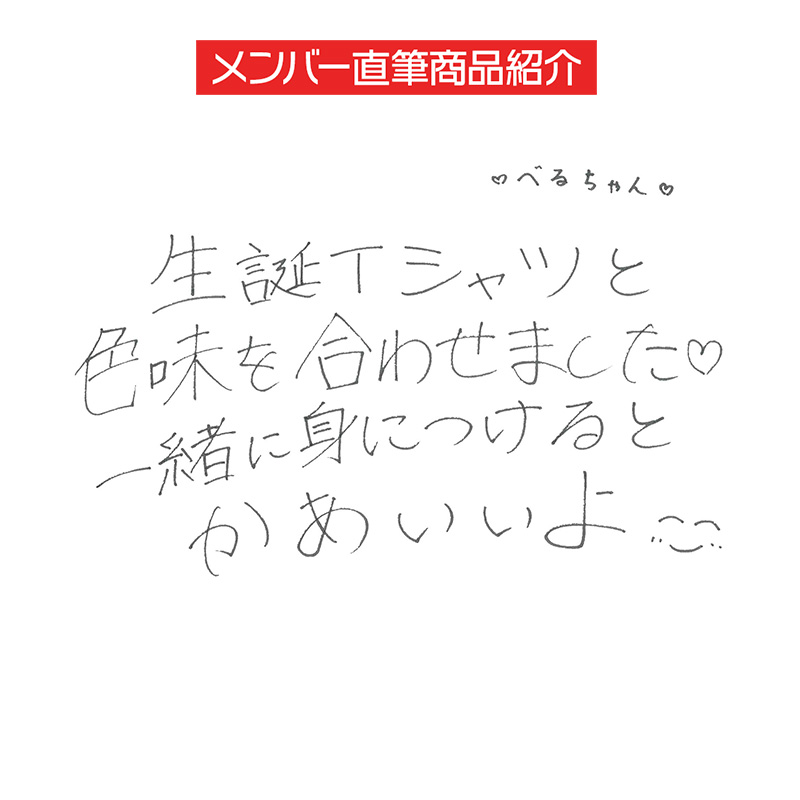 メンバー直筆商品紹介
♡べるちゃん♡
生誕Tシャツと
色味を合わせました♡
一緒に身につけると
かあいいよ